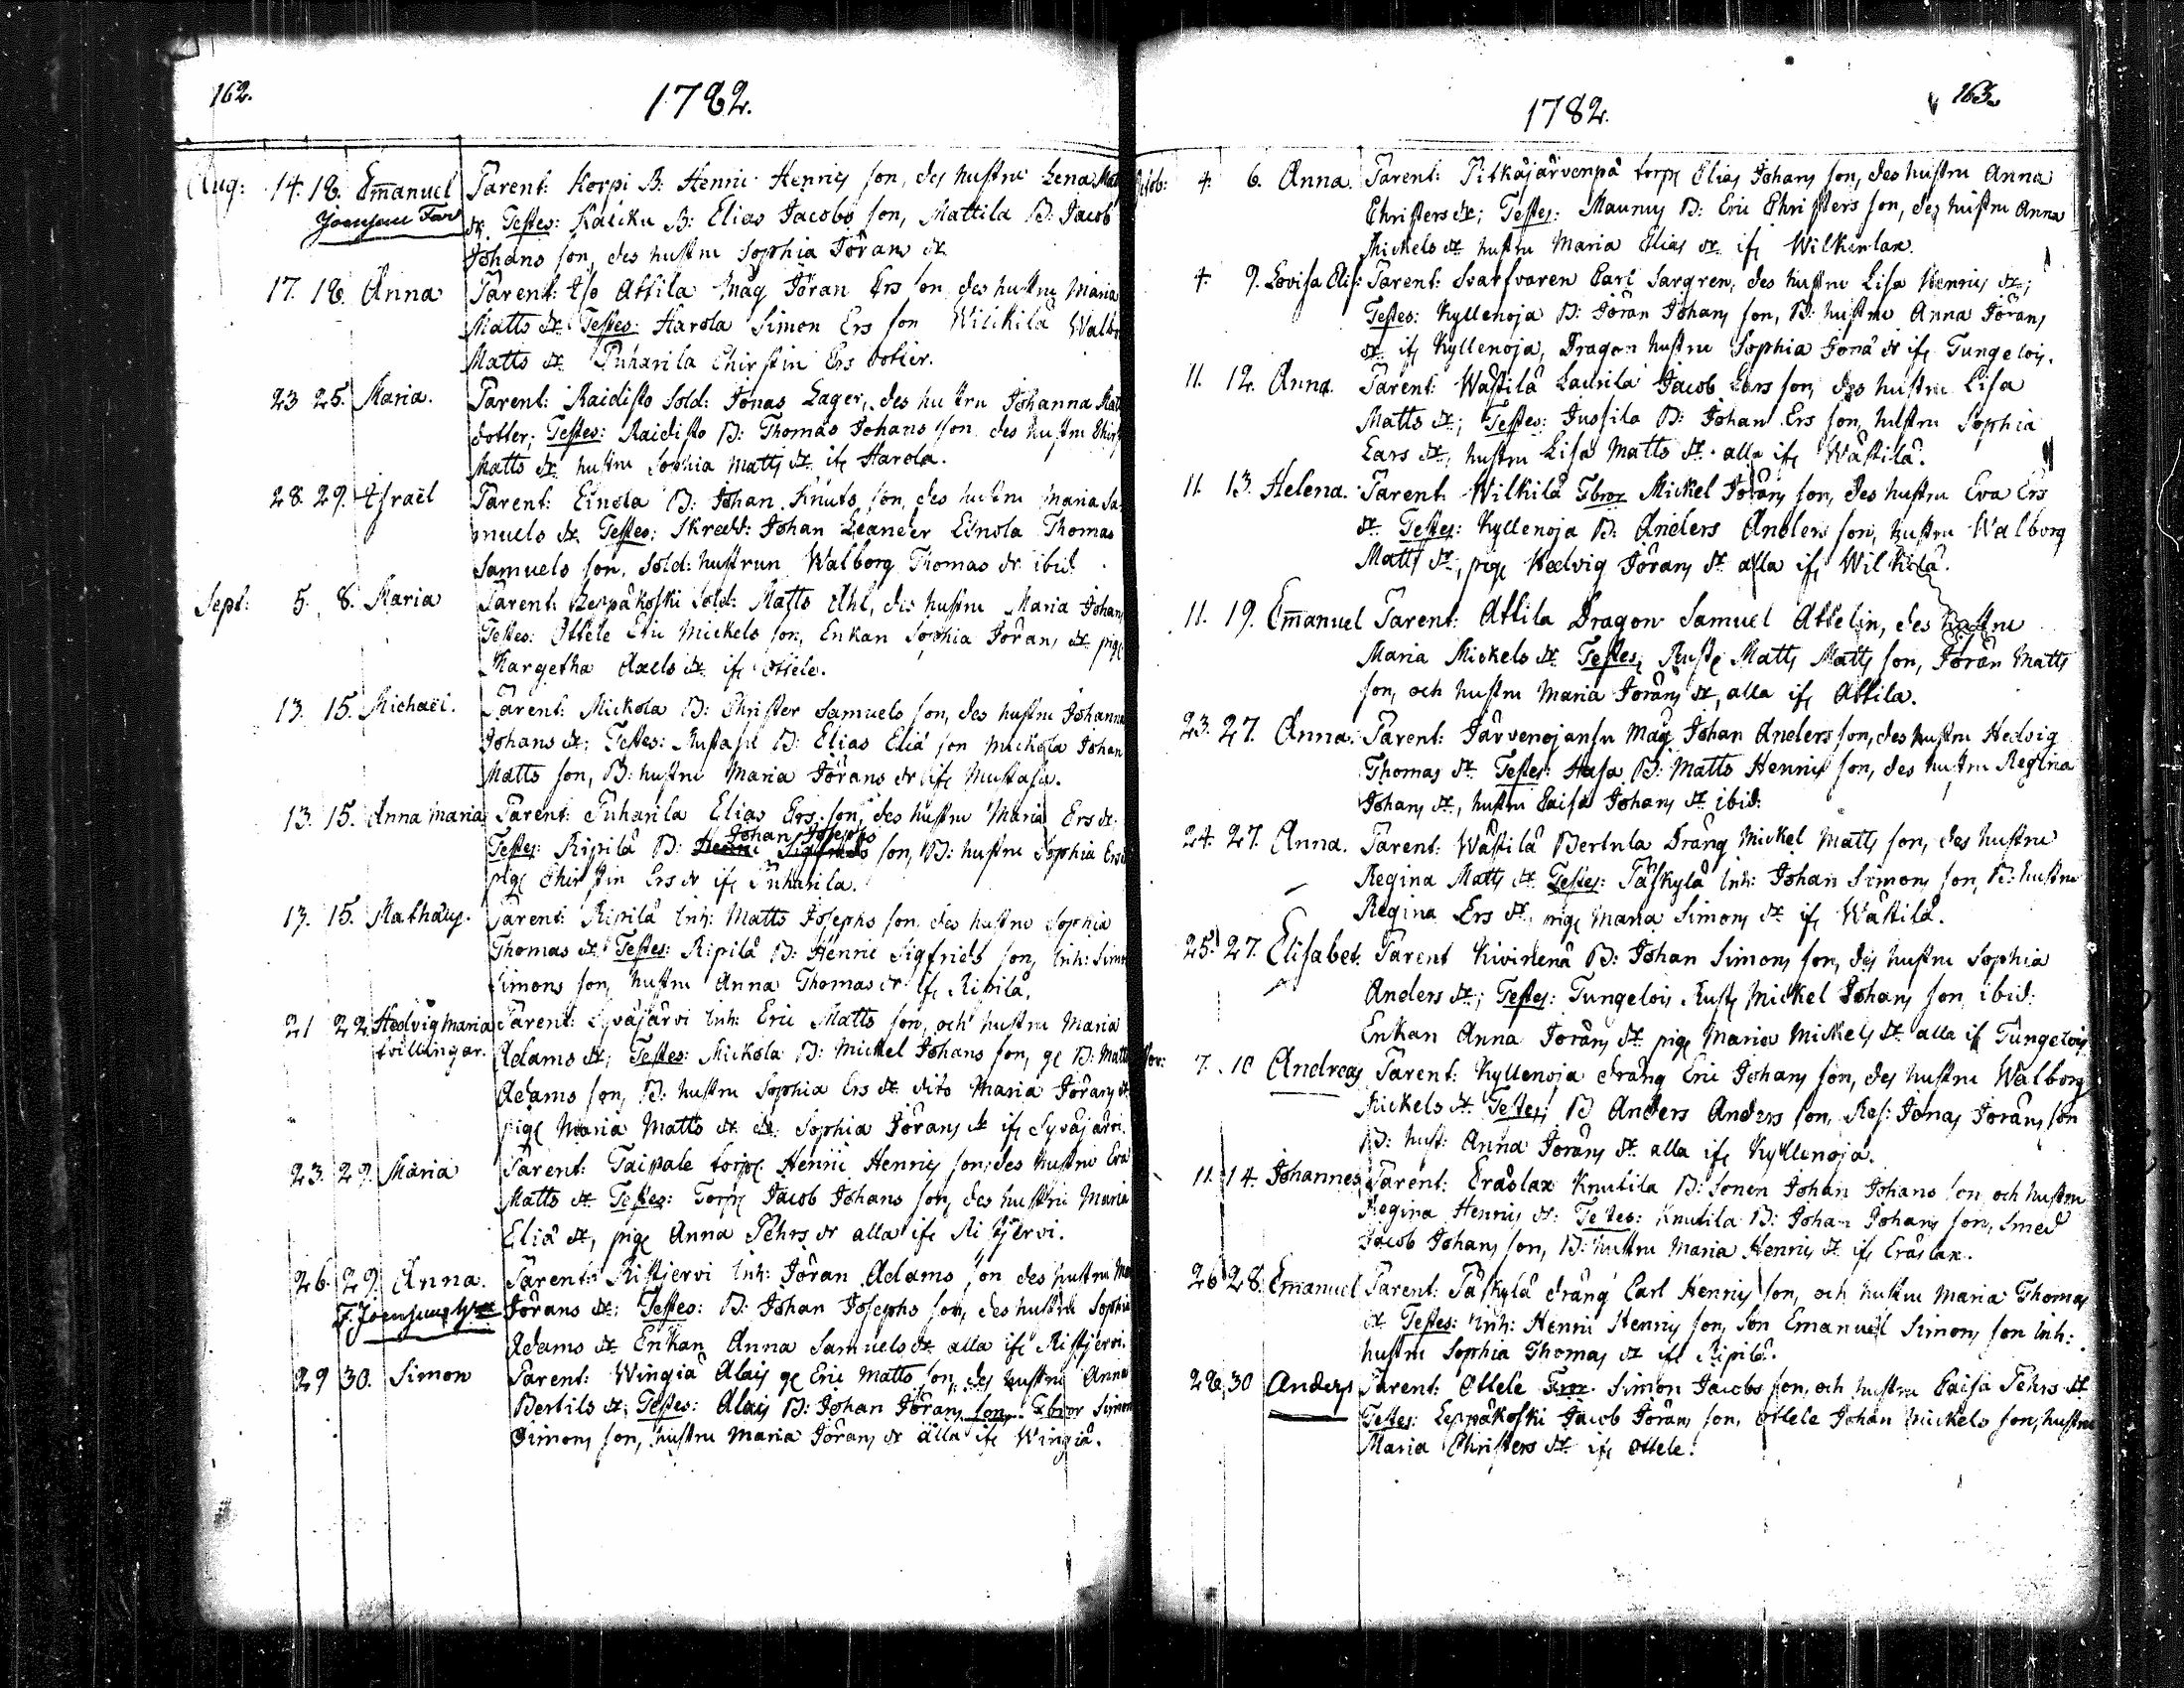 162.
1782.
Aug: 14. 18. Emanuel Parent: Korpi B: Henric Henrics son, des hustru Lena Mat
dr. Testes: Kaliku B: Elias Jacobs son, Mattila B: Jacob
Johans son, des hustru Sophia Jörans dr
17. 18. Anna Parent: Iso Attila Måg Jöran Ers son des hustru Maria
Matts dr. Testes: Harola Simon Ers son Wilikila Walb
Matts dr. Puharila Chirstin Ers dotter.
23 25. Maria. Parent: Raidisto Sold: Jonas Lager, des hustru Johanna Mat
dotter; Testes: Raidisto B: Thomas Johans son des hustru Chirs
Matts dr hustru Sophia Matts dr. ifr Harola.
28. 29. Israël Parent: Einola B: Johan Knuts son, des hustru Maria Sa-
muels dr. Testes; Skredd: Johan Leander Einola Thomas
Samuels son, Sold: hustrun Walborg Thomas dr ibid
Sept: 5. 8. Maria Parent: Leppäkoski Sold: Matts Ahl, des hustru Maria Johans
Testes: Ottele Eric Mickels son, Enkan Sophia Jörans dr. pig
Margetha Axels dr ifr Ottele.
13. 15. Michaël. Parent: Mickola B: Christer Samuels son, des hustru Johanna
Johans dr; Testes: Mustasu B: Elias Eliä son Mickola Johan
Matts son, B: hustru Maria Jörans dr ifr Mustasu.
13. 15. Anna Maria Parent: Puharila Elias Ers son, des hustru Maria Ers dr.
Johan Josephs
Testes: Ripilä B: Henric Sigfrids son, B: hustru Sophia Ers
pig Chirstin Ers dr ifr Puharila.
13. 15. Mathäus. Parent: Ripilä Inh: Matts Josephs son, des hustru Sophia
Thomas dr. Testes: Ripilä B: Henric Sigfrids son, Inh: Simo
Simons son, hustru Anna Thomas dr ifr Ripilä.
21 22 Hedvig Maria Parent: Syväjärvi Inh: Eric Matts son, och hustru Maria
tvillingar. Adams dr; Testes: Mickola B: Mickel Johans son, B: Matt
Adams son, B: hustru Sophia Ers dr dito Maria Jörans dr
pig Maria Matts dr Sophia Jörans dr ifr Syväjärvi.
23. 29. Maria Parent: Taipale torp Henric Henrics son, des hustru Eva
Matts dr Testes: Torp Jacob Johans son, des hustru Maria
Eliä dr, pig Anna Pehrs dr alla ifr Ristjervi.
26. 29. Anna. Parent: Ristjervi Inh: Jöran Adams son des hustru Ma
Jörans dr; Testes: B: Johan Josephs son, des hustru Sophia
Adams dr Enkan Anna Samuels dr alla ifr Ristjervi.
29 30. Simon Parent: Wingiä Alais Eric Matts son, des hustru Anna
Bertils dr; Testes: Alais B: Johan Jörans son, Simon
Simons son, hustru Maria Jörans dr alla ifr Wingiä.
1782.
163.
Octob: 4. 6. Anna. Parent: Pitkäjärvenpä torp Elias Johans son, des hustru Anna
Christers dr; Testes: Maunus B: Eric Christers son, des hustru Anna
Mickels dr hustru Maria Elias dr. ifr Wilkinlax.
4. 9. Lovisa Elis: Parent: Svarfvaren Carl Sargren, des hustru Lisa Henrics dr;
Testes: Kyllenoja B: Jöran Johans son, B: hustru Anna Jörans
dr ifr Kyllenoja, Dragon hustru Sophia Jonä dr ifr Tungelois.
11. 12. Anna. Parent: Wästilä Laurila Jacob Lars son, des hustru Lisa
Matts dr; Testes: Jussila B: Johan Ers son, hustru Sophia
Lars dr, hustru Lisa Matts dr. alla ifr Wästilä.
11. 13. Helena. Parent: Wilkilä Mickel Jörans son, des hustru Eva Ers
dr. Testes: Kyllenoja B: Anders Anders son, hustru Walborg
Matts dr, pig Hedvig Jörans dr alla ifr Wilkilä.
11. 19. Emanuel Parent: Attila Dragon Samuel Attelin, des hustru
Maria Mickels dr. Testes; Rust Matts Matts son, Jöran Matts
son, och hustru Maria Jörans dr, alla ifr Attila.
23. 27. Anna. Parent: Järvenojansu Måg Johan Anders son, des hustru Hedvig
Thomas dr. Testes: Hasa B: Matts Henrics son, des hustru Regina
Johans dr, hustru Caisa Johans dr ibid:
24. 27. Anna. Parent: Wästilä Bertula Dräng Mickel Matts son, des hustru
Regina Matts dr. Testes: Päskylä Inh: Johan Simons son, B: hustru
Regina Ers dr. pig Maria Simons dr ifr Wästilä.
25. 27. Elisabet. Parent Kivinenä B: Johan Simons son, des hustru Sophia
Anders dr; Testes: Tungelois Rust Mickel Johans son ibid:
Enkan Anna Jörans dr pig Maria Mickels dr alla ifr Tungelois
Nov: 7. 10 Andreas Parent: Kyllenoja dräng Eric Johans son, des hustru Walborg
Mickels dr. Testes; B Anders Anders son, Res: Jonas Jörans son
B: hust: Anna Jörans dr alla ifr Kyllenoja.
11. 14. Johannes Parent: Eräslax Knutila B: Sonen Johan Johans son och hustru
Regina Henrics dr: Testes: Knutila B: Johan Johans son, Smed
Jacob Johans son, B: hustru Maria Henrics dr ifr Eräslax.
26 28. Emanuel Parent: Päskylä dräng Carl Henrics son, och hustru Maria Thomas
dr Testes: Inh: Henric Henrics son, Son Emanuel Simons son Inh:
hustru Sophia Thomas dr ifr Ripilä.
28. 30 Anders Parent: Ottele Simon Jacobs son, och hustru Caisa Pehrs dr
Testes: Leppäkoski Jacob Jörans son, Ottele Johan Mickels son, hustru
Maria Christers dr ifr Ottele.